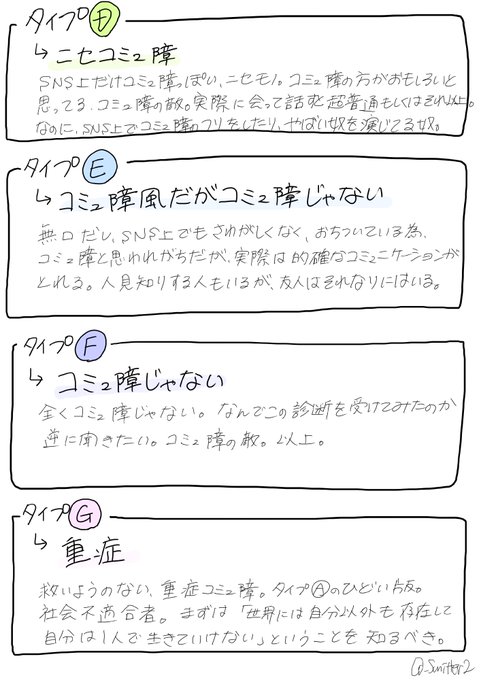 タイプ D
↳ ニセコミュ障
SNS上だけコミュ障っぽい、ニセモノ。コミュ障の方がおもしろいと
思ってる、コミュ障の敵。実際に会って話すと超普通もしくはそれ以上。
なのに、SNS上でコミュ障のフリをしたり、やばい奴を演じてる奴。
タイプ E
↳ コミュ障風だがコミュ障じゃない
無口だし、SNS上でもさわがしくなく、おちついている為、
コミュ障と思われがちだが、実際は的確なコミュニケーションが
とれる。人見知りする人もいるが、友人はそれなりにはいる。
タイプ F
↳ コミュ障じゃない
全くコミュ障じゃない。なんでこの診断を受けてみたのか
逆に聞きたい。コミュ障の敵。以上。
タイプ G
↳ 重症
救いようのない、重症コミュ障。タイプⒶのひどい版。
社会不適合者。まずは「世界には自分以外も存在して
自分は1人で生きていけない」ということを知るべき。